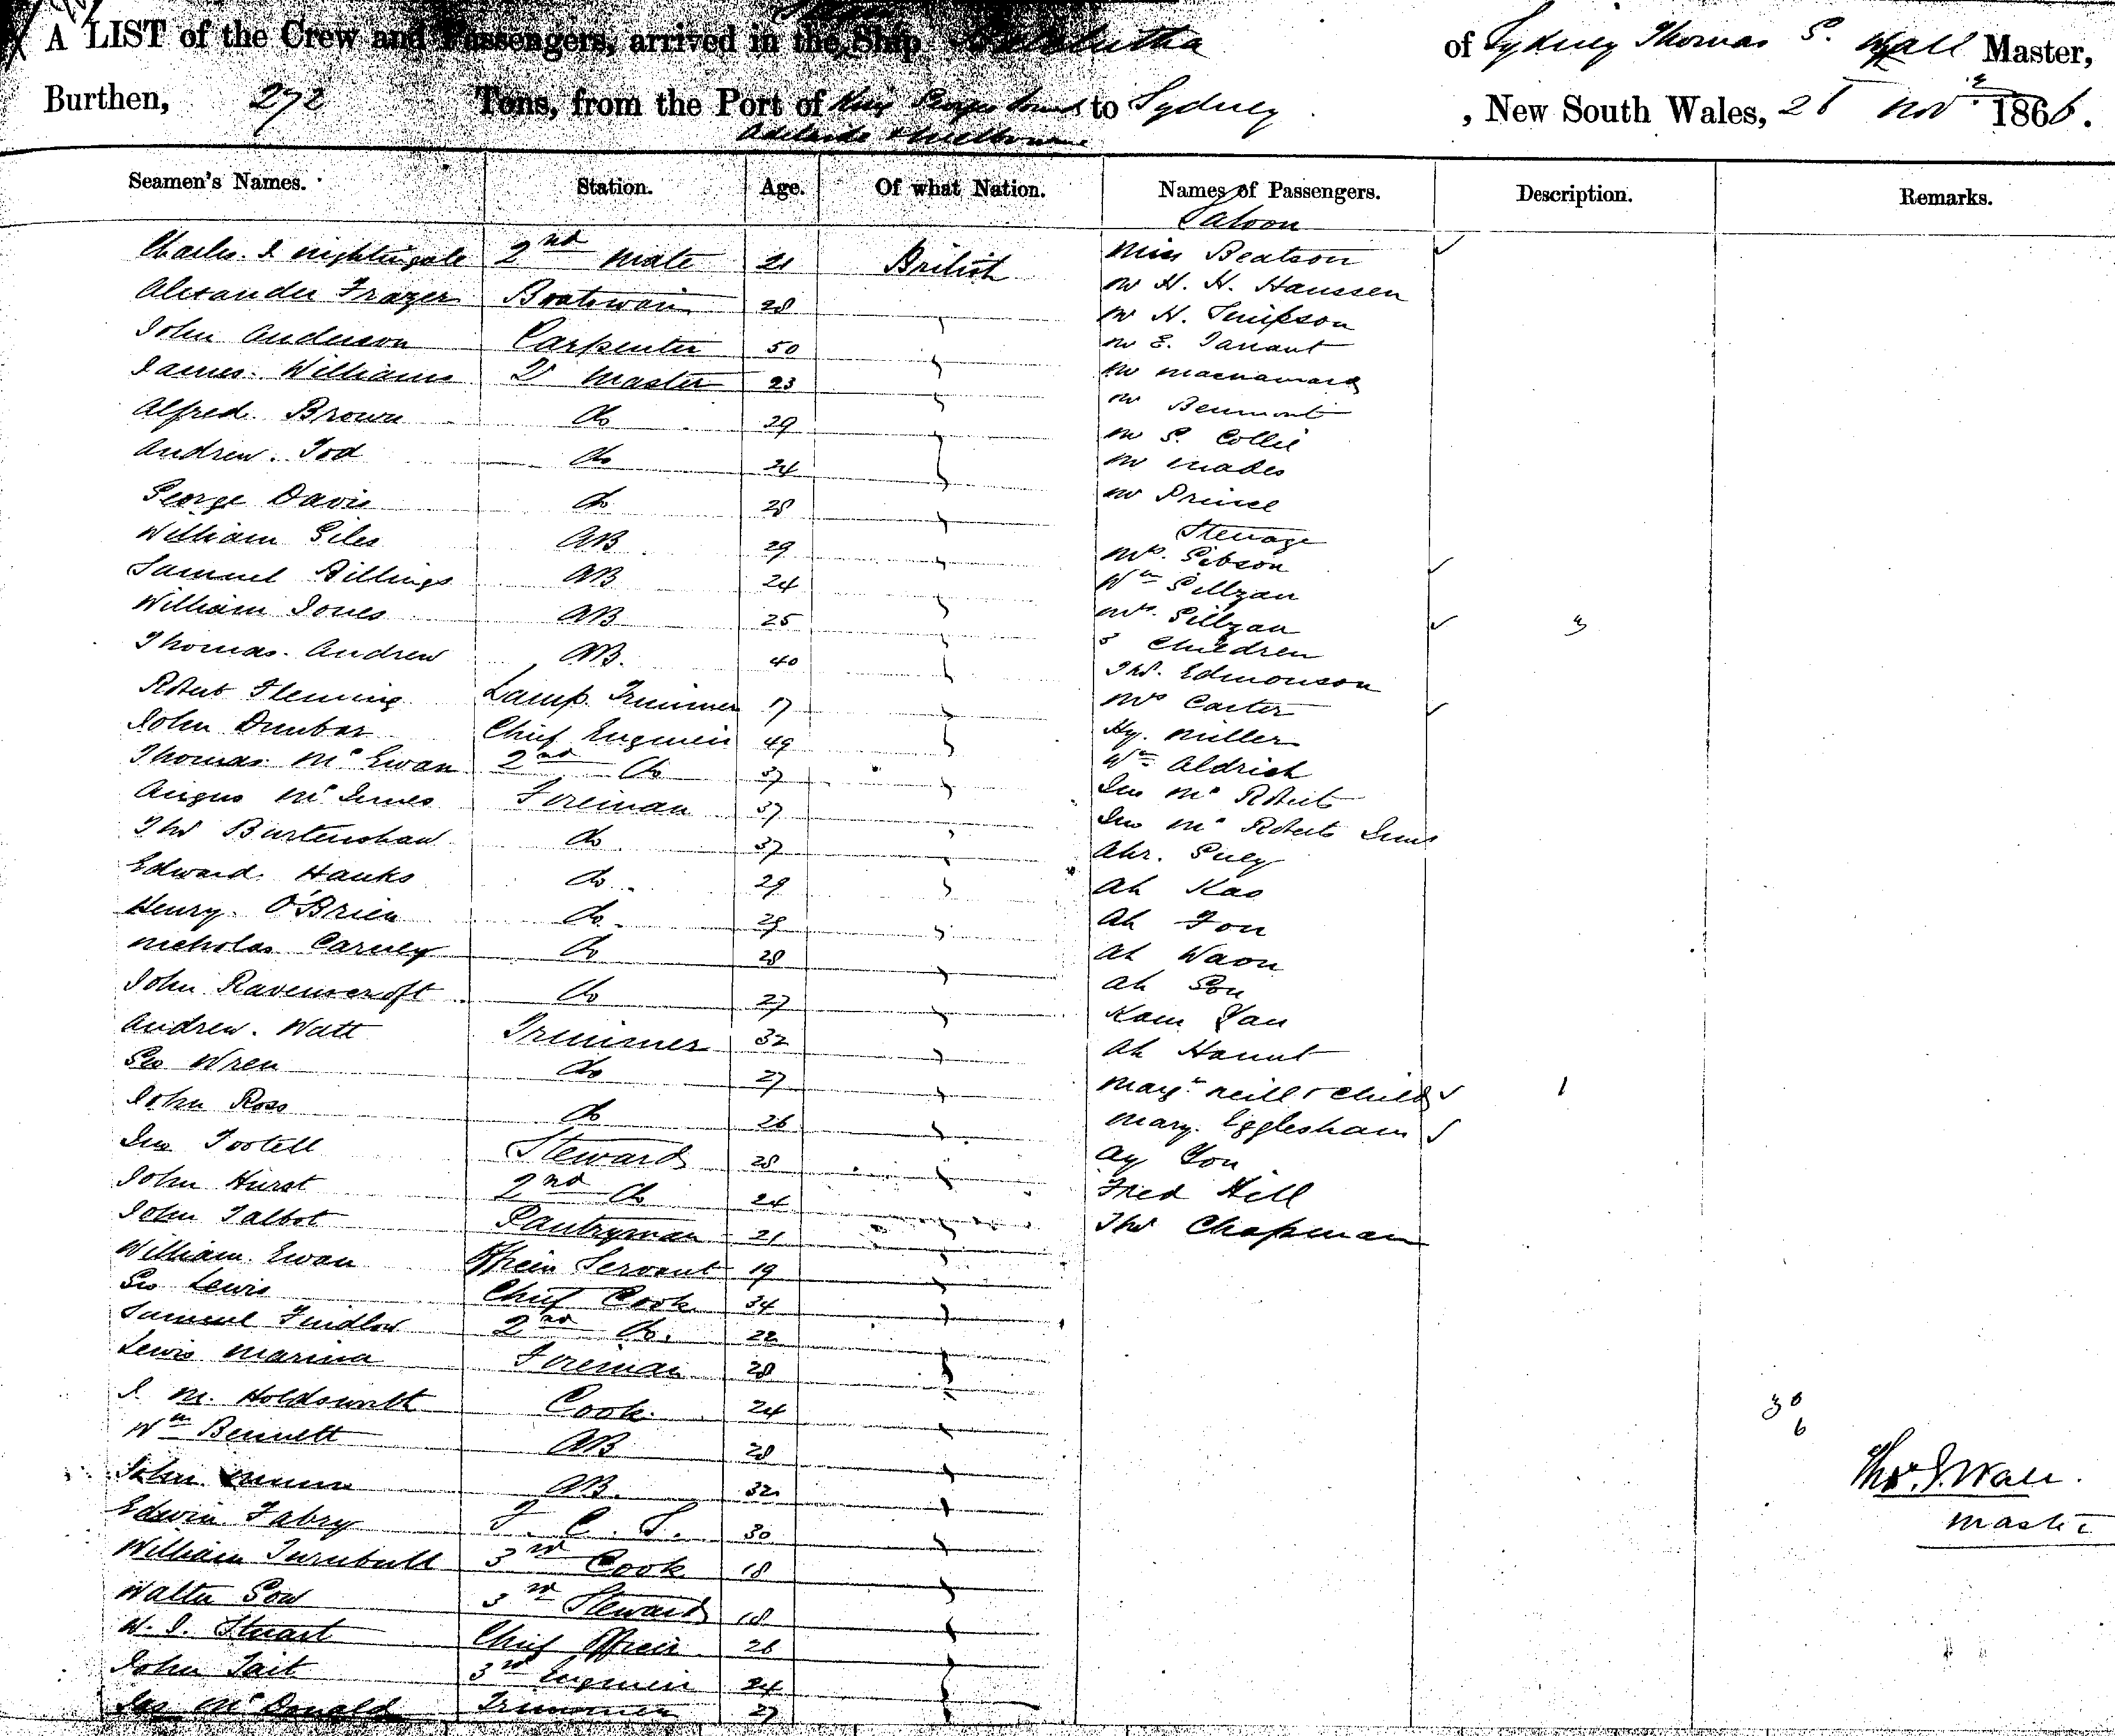 A LIST of the Crew and Passengers, arrived in the Ship of Sydney Thomas S. Wall Master,
Burthen, 272 Tons, from the Port of King Georges Sound to Sydney , New South Wales, Nov 1866.
Adelaide & Melbourne
Seamen's Names. Station. Age. Of what Nation. Names of Passengers. Description. Remarks.
Saloon
Charles I Nightingale 2nd Mate 21 British Miss Beatson
Alexander Frazer Boatswain 28 Mr H. H. Haussen
John Anderson Carpenter 50 Mr H. Simpson
James Williams 2 Master 23 Mr E. Tarrant
Alfred Brown do 29 Mr Macnamara
Andrew Tod do 24 Mr Beumont
George Davis do 28 Mr S. Collie
William Giles AB 29 Mr Mades
Samuel Billings AB 24 Mr Prince
William Jones AB 25 Steerage
Thomas Andrew AB. 40 Mrs Gibson
Robert Fleming Lamp Trimmer 17 Wm Gillzan
John Dunbar Chief Engineer 49 Mrs Gillzan 3
Thomas McEwan 2nd do 37 3 Children
Angus McInnes Fireman 37 Thos. Edmonson
Thos Burtenshaw do 37 Mrs Carter
Edward Hanks do 29 Hy. Miller
Henry O'Brien do 29 Wm Aldrich
Nicholas Carney do 28 Jno McRoberts
John Ravenscroft do 27 Jno McRoberts Junr
Andrew Watt Trimmer 32
Geo Wren do 27 Ah Kao
John Ross do 26 Ah Fon
Jno Tootell Steward 28 Ah Waon
John Hurst 2nd do 24 Ah Gou
John Talbot Pantryman 21 Kam Yan
William Ewan Officers Servant 19 Ah Haunt
Geo Lewis Chief Cook 34 Margt Neill & Child 1
Samuel Findlow 2nd do. 22 Mary Egglesham
Lewis Marina Fireman 28 Ay You
J. M. Holdsworth Cook 24 Fred Hill
Wm Bennett AB 28 Thos Chapman
John Munn AB. 32
Edwin Fabry F. C. S. 30
William Turnbull 3rd Cook 18
Walter Gow 3rd Steward 18
W. J. Stuart Chief Officer 26
John Tait 3rd Engineer 24
Jas McDonald Trimmer 27
36
6
Thos. S. Wall.
Master